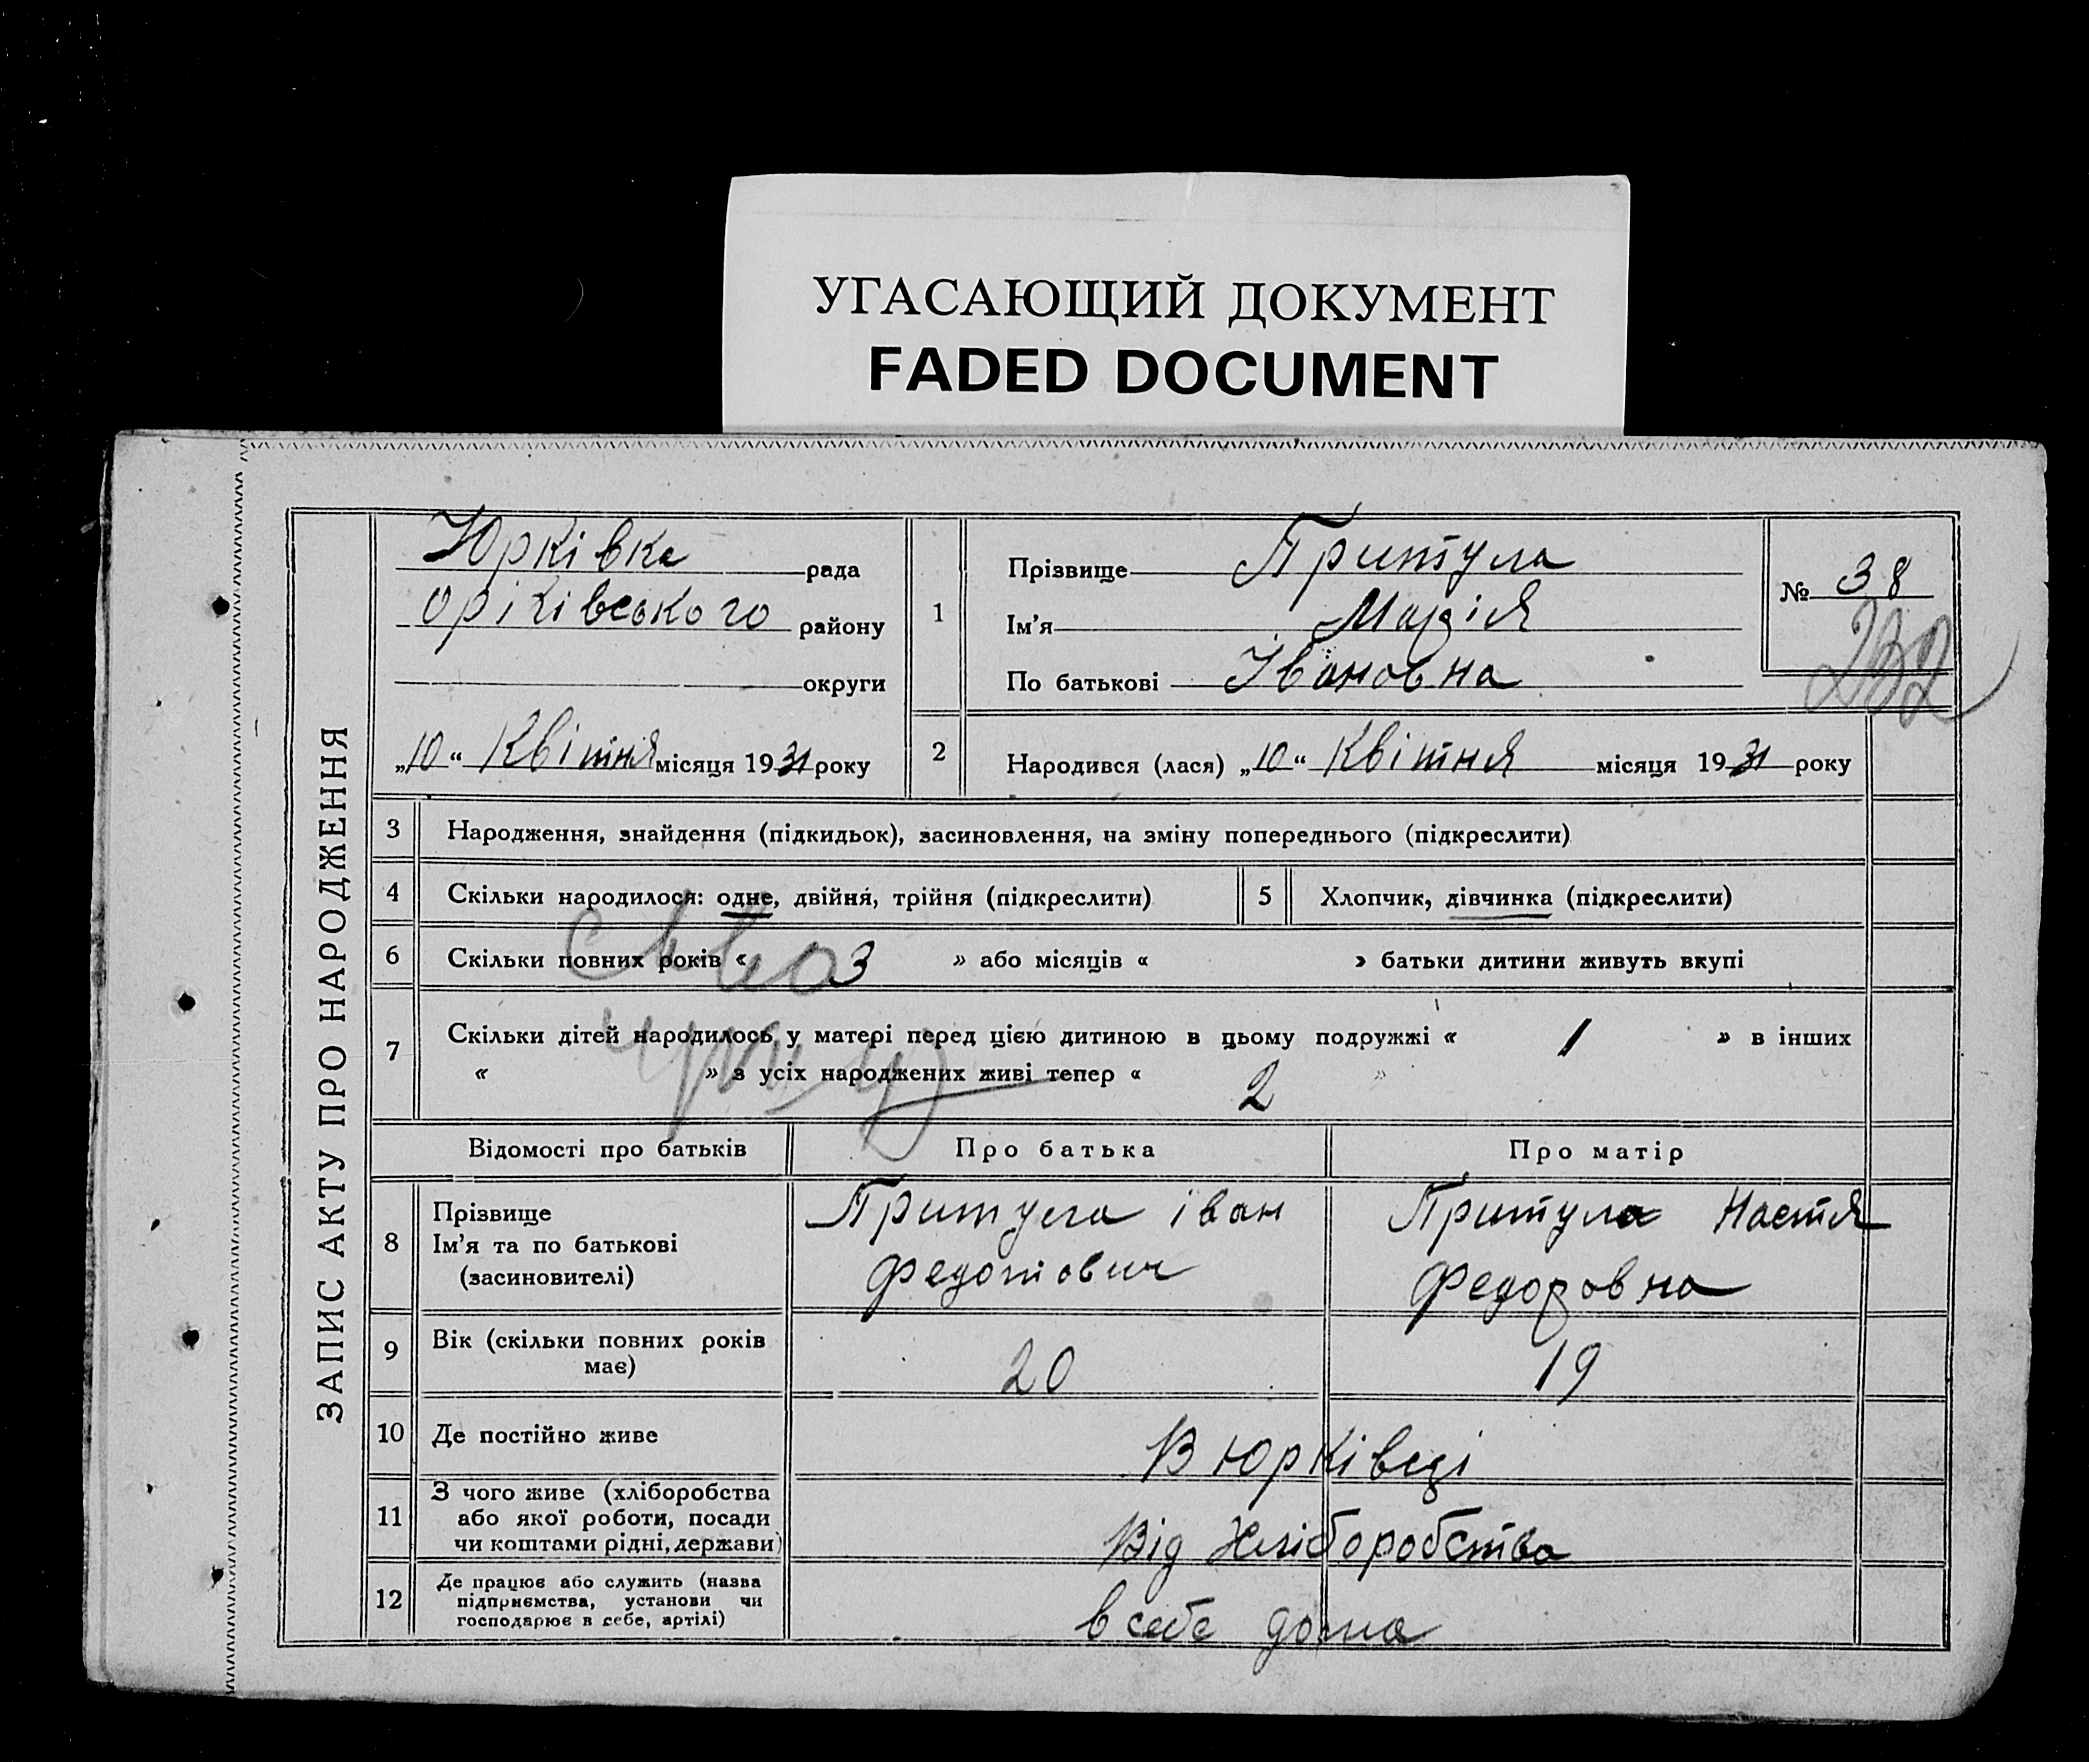 УГАСАЮЩИЙ ДОКУМЕНТ
FADED DOCUMENT
ЗАПИС АКТУ ПРО НАРОДЖЕННЯ
Юрківка рада
Оріхівського району
округи
„10“ Квітня місяця 1931 року
1
Прізвище Притула
Ім'я Марія
По батькові Івановна
№ 38
232
2 Народився (лася) „10“ Квітня місяця 1931 року
3 Народження, знайдення (підкидьок), засиновлення, на зміну попереднього (підкреслити)
4 Скільки народилося: одне, двійня, трійня (підкреслити)
5 Хлопчик, дівчинка (підкреслити)
6 Скільки повних років « 3 » або місяців « » батьки дитини живуть вкупі
7 Скільки дітей народилось у матері перед цією дитиною в цьому подружжі « 1 » в інших
« » з усіх народжених живі тепер « 2 »
Відомості про батьків Про батька Про матір
8 Прізвище
Ім'я та по батькові
(засиновителі)
Притула іван
Федотович
Притула Настя
Федоровна
9 Вік (скільки повних років
має)
20 19
10 Де постійно живе В юрківці
11 З чого живе (хліборобства
або якої роботи, посади
чи коштами рідні, держави)
Від Хліборобства
12 Де працює або служить (назва
підприємства, установи чи
господарює в себе, артілі)
в себе дома